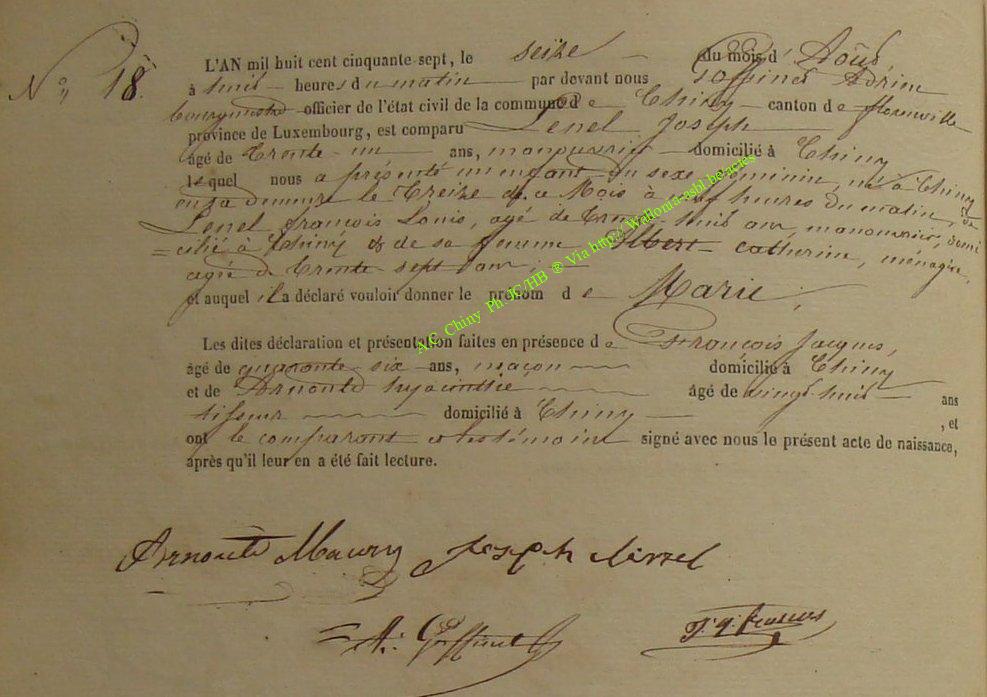 N° 18.
L'AN mil huit cent cinquante-sept, le seize du mois d' Août
à huit heures du matin par devant nous Goffinet Adrien
bourgmestre officier de l'état civil de la commune de Chiny canton de florenville
province de Luxembourg, est comparu Lenel Joseph
âgé de trente-un ans, manouvrier domicilié à Chiny
lequel nous a présenté un enfant du sexe féminin, né à Chiny
en sa demeure le treize de ce Mois à heures du matin, de
Lenel françois Louis, agé de trente-huit ans, manouvrier, domi
=cilié à Chiny & de sa femme Catherine, ménagère,
agée de trente-sept ans;
et auquel il a déclaré vouloir donner le prénom de Marie;
Les dites déclaration et présentation faites en présence de François Jacques,
âgé de quarante-six ans, maçon domicilié à Chiny
et de Arnould hyacinthe âgé de vingt-huit ans
tisseur domicilié à Chiny , et
ont le comparant et les témoins signé avec nous le présent acte de naissance,
après qu'il leur en a été fait lecture.
Arnould Joseph
A. Goffinet
A.C. Chiny Ph JC/HB ® Via http:// Wallonia-asbl.be/actes